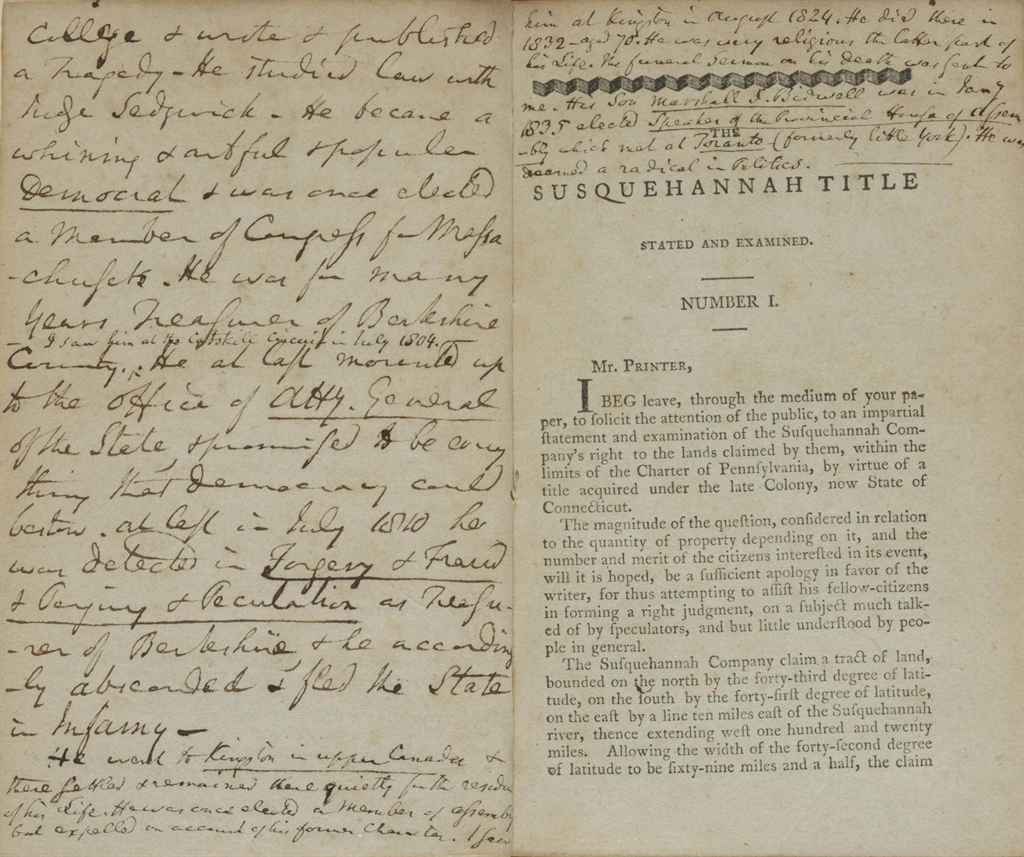 College & wrote & published
a Tragedy - He studied Law with
Judge Sedgwick - He became a
whining & artful & popular
Democrat & was once elected
a Member of Congress for Massa
-chusetts. He was for many
Years Treasurer of Berkshire
- I saw him at the Catskill Circuit in July 1804.
County. He at last mounted up
to the office of Atty. General
of the State & promised to be every
thing that Democracy could
bestow. At last in July 1810 he
was detected in Forgery & Fraud
& Perjury & Peculation as Treasu-
-rer of Berkshire & he according
-ly absconded & fled the State
in Infamy -
He went to Kingston in upper Canada &
there settled & remained there quietly for the residue
of his Life. He was once elected a Member of assembly
but expelled on account of his former Character. I saw
him at Kingston in August 1824. He died there in
1832 - aged 70. He was very religious the latter part of
his Life. His funeral Sermon on his Death was sent to
me. His Son Marshall S. Bidwell was in Jany
1835 elected Speaker of the Provincial House of Assem
-bly which met at Toranto (formerly little York). He was
deemed a radical in Politics.
THE
SUSQUEHANNAH TITLE
STATED AND EXAMINED.
NUMBER I.
Mr. PRINTER,
I BEG leave, through the medium of your pa-
per, to ſolicit the attention of the public, to an impartial
ſtatement and examination of the Suſquehannah Com-
pany's right to the lands claimed by them, within the
limits of the Charter of Pennſylvania, by virtue of a
title acquired under the late Colony, now State of
Connecticut.
The magnitude of the queſtion, conſidered in relation
to the quantity of property depending on it, and the
number and merit of the citizens intereſted in its event,
will it is hoped, be a ſufficient apology in favor of the
writer, for thus attempting to aſſiſt his fellow-citizens
in forming a right judgment, on a ſubject much talk-
ed of by ſpeculators, and but little underſtood by peo-
ple in general.
The Suſquehannah Company claim a tract of land,
bounded on the north by the forty-third degree of lati-
tude, on the ſouth by the forty-firſt degree of latitude,
on the eaſt by a line ten miles eaſt of the Suſquehannah
river, thence extending weſt one hundred and twenty
miles. Allowing the width of the forty-ſecond degree
of latitude to be ſixty-nine miles and a half, the claim